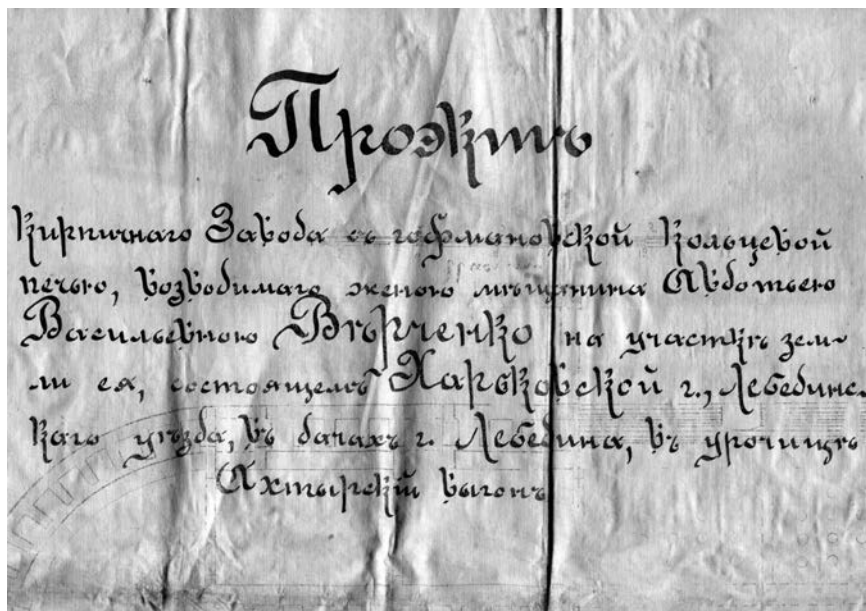 Проэктъ
Кирпичнаго Завода съ гофмановской Кольцевой
печью, возводимаго женою мѣщанина Авдотьею
Васильевною Вѣрченко на участкѣ зем-
ли ея, состоящемъ Харьковской г., Лебединс-
каго уѣзда, въ дачахъ г. Лебедина, въ урочищѣ
Ахтырскій выгонъ